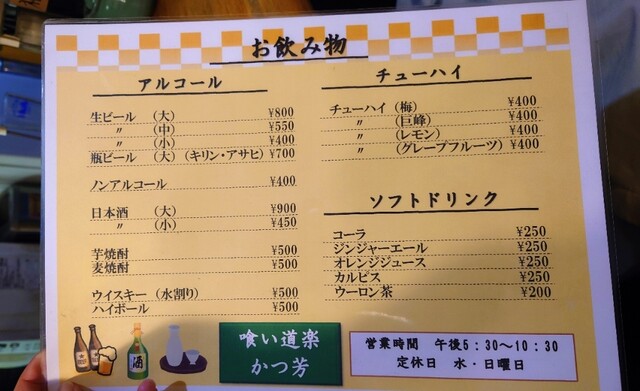 お飲み物
アルコール
生ビール （大） ¥800
〃 （中） ¥550
〃 （小） ¥400
瓶ビール （大）（キリン・アサヒ） ¥700
ノンアルコール ¥400
日本酒 （大） ¥900
〃 （小） ¥450
芋焼酎 ¥500
麦焼酎 ¥500
ウイスキー （水割り） ¥500
ハイボール ¥500
チューハイ
チューハイ（梅） ¥400
〃 （巨峰） ¥400
〃 （レモン） ¥400
〃 （グレープフルーツ） ¥400
ソフトドリンク
コーラ ¥250
ジンジャーエール ¥250
オレンジジュース ¥250
カルピス ¥250
ウーロン茶 ¥200
酒
喰い道楽
かつ芳
営業時間 午後5：30～10：30
定休日 水・日曜日